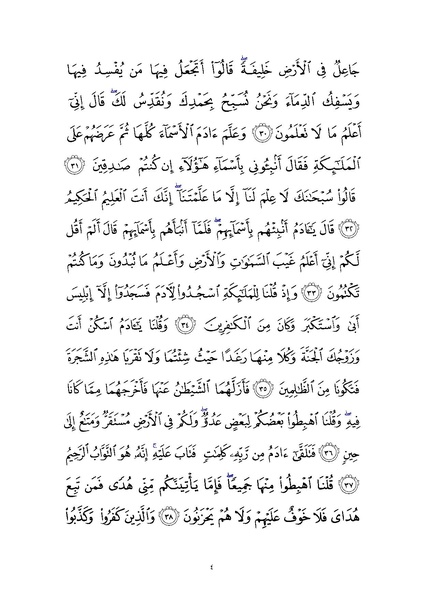 جَاعِلٌ فِى ٱلْأَرْضِ خَلِيفَةًۖ قَالُوٓا۟ أَتَجْعَلُ فِيهَا مَن يُفْسِدُ فِيهَا
وَيَسْفِكُ ٱلدِّمَآءَ وَنَحْنُ نُسَبِّحُ بِحَمْدِكَ وَنُقَدِّسُ لَكَۖ قَالَ إِنِّىٓ
أَعْلَمُ مَا لَا تَعْلَمُونَ ٣٠ وَعَلَّمَ ءَادَمَ ٱلْأَسْمَآءَ كُلَّهَا ثُمَّ عَرَضَهُمْ عَلَى
ٱلْمَلَٰٓئِكَةِ فَقَالَ أَنۢبِـُٔونِى بِأَسْمَآءِ هَٰٓؤُلَآءِ إِن كُنتُمْ صَٰدِقِينَ ٣١
قَالُوا۟ سُبْحَٰنَكَ لَا عِلْمَ لَنَآ إِلَّا مَا عَلَّمْتَنَآۖ إِنَّكَ أَنتَ ٱلْعَلِيمُ ٱلْحَكِيمُ
٣٢ قَالَ يَٰٓـَٔادَمُ أَنۢبِئْهُم بِأَسْمَآئِهِمْۖ فَلَمَّآ أَنۢبَأَهُم بِأَسْمَآئِهِمْ قَالَ أَلَمْ أَقُل
لَّكُمْ إِنِّىٓ أَعْلَمُ غَيْبَ ٱلسَّمَٰوَٰتِ وَٱلْأَرْضِ وَأَعْلَمُ مَا تُبْدُونَ وَمَا كُنتُمْ
تَكْتُمُونَ ٣٣ وَإِذْ قُلْنَا لِلْمَلَٰٓئِكَةِ ٱسْجُدُوا۟ لِءَادَمَ فَسَجَدُوٓا۟ إِلَّآ إِبْلِيسَ
أَبَىٰ وَٱسْتَكْبَرَ وَكَانَ مِنَ ٱلْكَٰفِرِينَ ٣٤ وَقُلْنَا يَٰٓـَٔادَمُ ٱسْكُنْ أَنتَ
وَزَوْجُكَ ٱلْجَنَّةَ وَكُلَا مِنْهَا رَغَدًا حَيْثُ شِئْتُمَا وَلَا تَقْرَبَا هَٰذِهِ ٱلشَّجَرَةَ
فَتَكُونَا مِنَ ٱلظَّٰلِمِينَ ٣٥ فَأَزَلَّهُمَا ٱلشَّيْطَٰنُ عَنْهَا فَأَخْرَجَهُمَا مِمَّا كَانَا
فِيهِۖ وَقُلْنَا ٱهْبِطُوا۟ بَعْضُكُمْ لِبَعْضٍ عَدُوٌّۖ وَلَكُمْ فِى ٱلْأَرْضِ مُسْتَقَرٌّ وَمَتَٰعٌ إِلَىٰ
حِينٍ ٣٦ فَتَلَقَّىٰٓ ءَادَمُ مِن رَّبِّهِۦ كَلِمَٰتٍ فَتَابَ عَلَيْهِۚ إِنَّهُۥ هُوَ ٱلتَّوَّابُ ٱلرَّحِيمُ
٣٧ قُلْنَا ٱهْبِطُوا۟ مِنْهَا جَمِيعًاۖ فَإِمَّا يَأْتِيَنَّكُم مِّنِّى هُدًى فَمَن تَبِعَ
هُدَاىَ فَلَا خَوْفٌ عَلَيْهِمْ وَلَا هُمْ يَحْزَنُونَ ٣٨ وَٱلَّذِينَ كَفَرُوا۟ وَكَذَّبُوا۟
٤